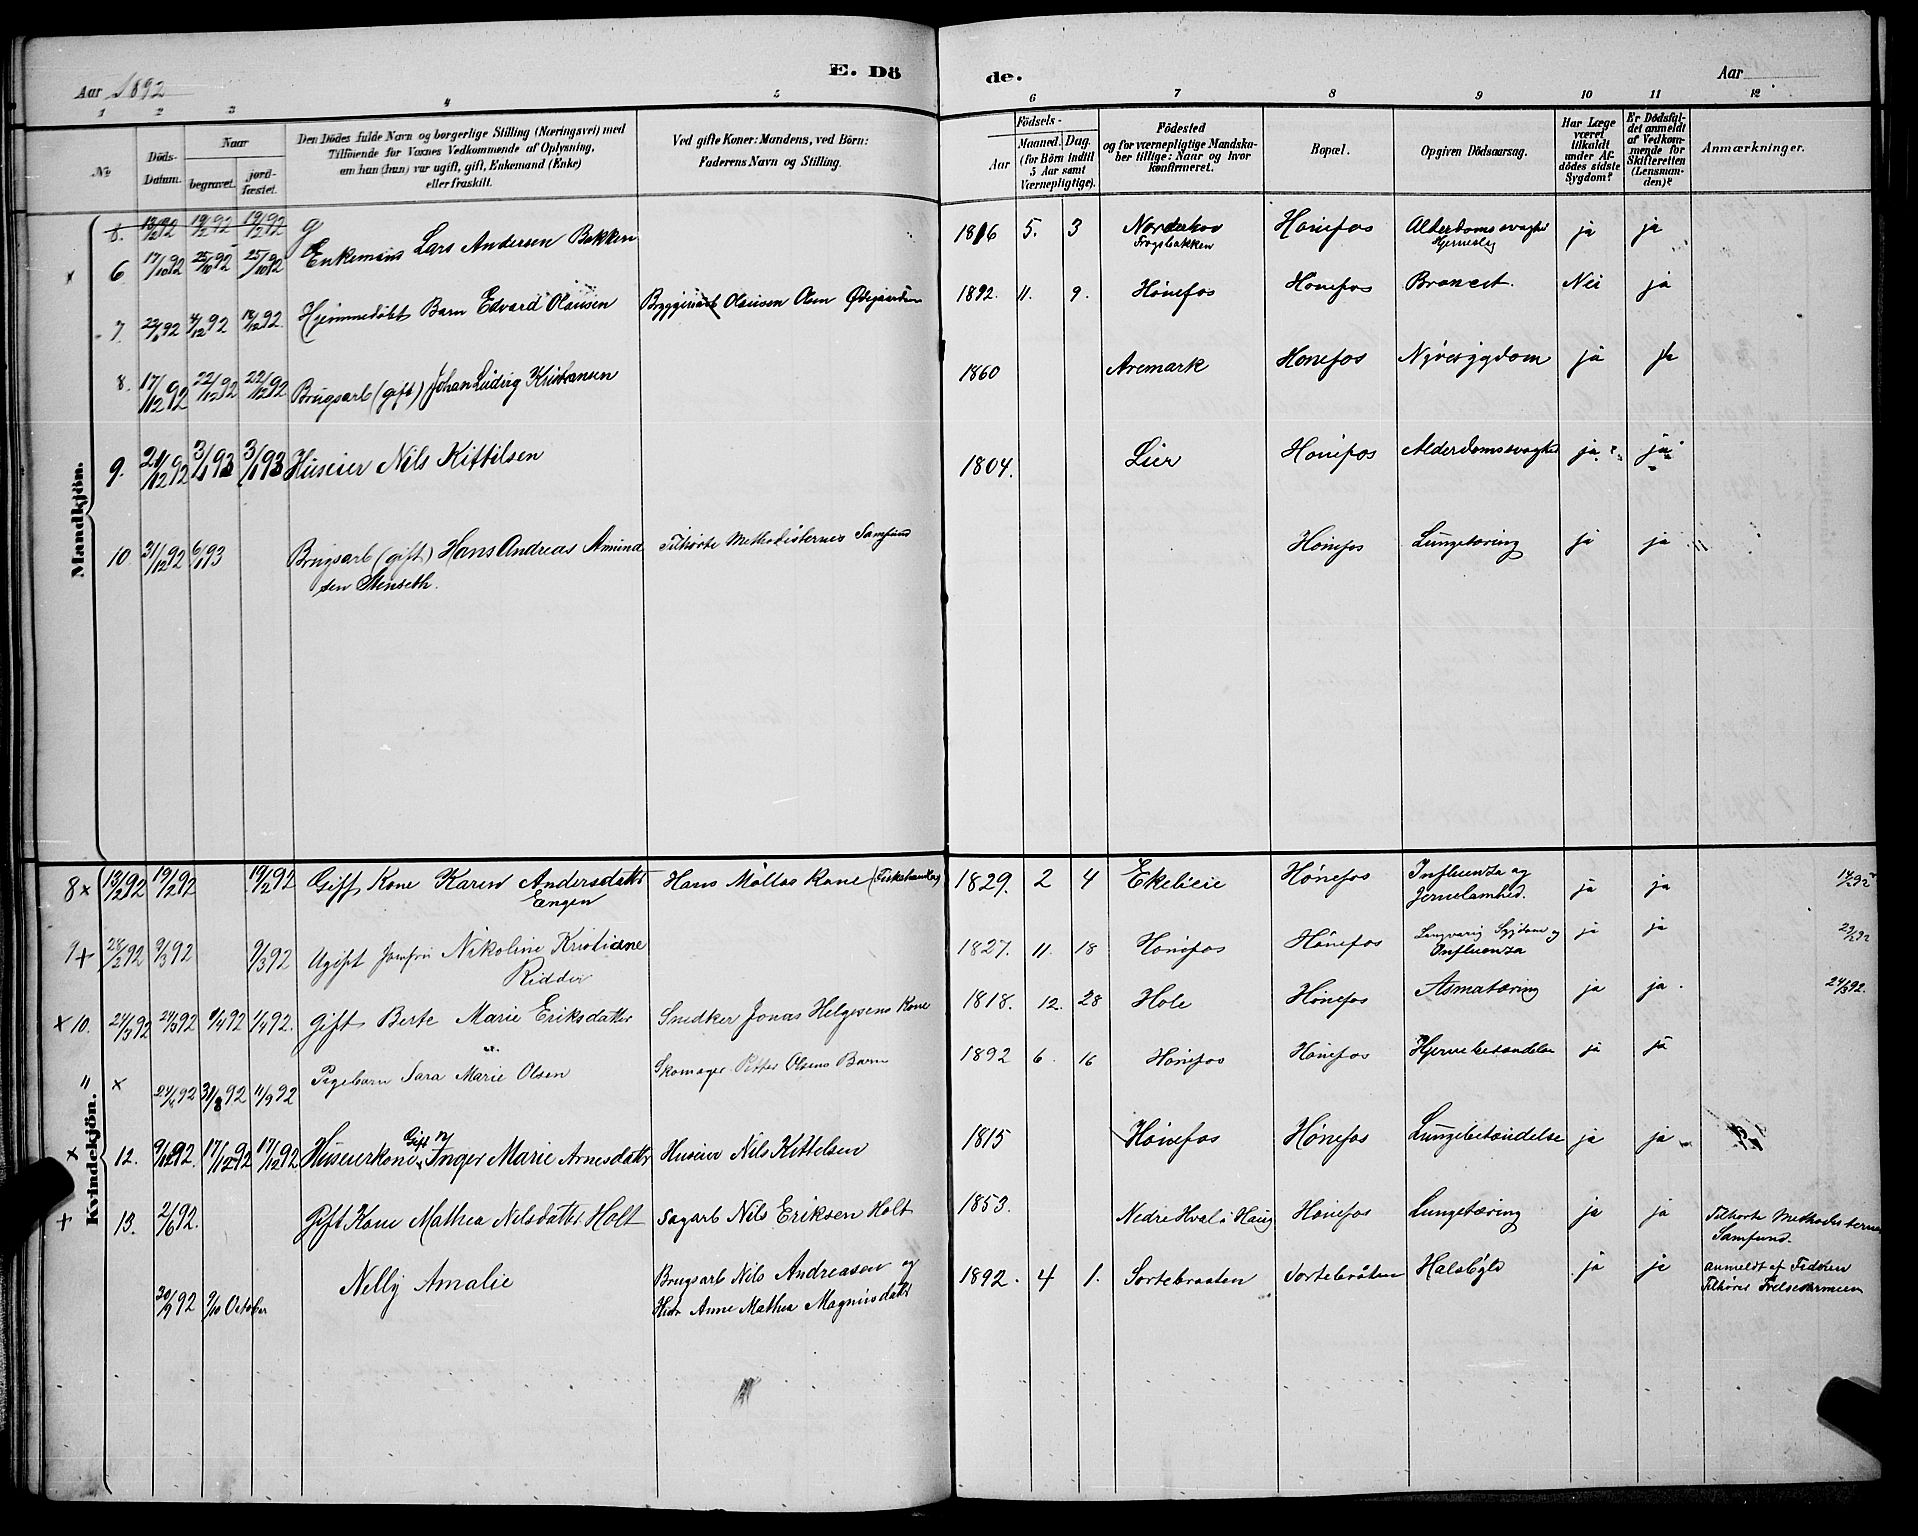 E. Dö
de.
Aar 1892
Aar
1 2 3 4 5 6 7 8 9 10 11 12
№
Döds-
Datum.
Naar
begravet.
jord-
fæstet.
Den Dödes fulde Navn og borgerlige Stilling (Næringsvei) med
Tilföiende for Voxnes Vedkommende af Oplysning,
om han (hun) var ugift, gift, Enkemand (Enke)
eller fraskilt.
Ved gifte Koner: Mandens, ved Börn:
Faderens Navn og Stilling.
Födsels-
Aar
Maaned.
Dag.
(for Börn indtil
5 Aar samt
Værnepligtige).
Födested
og for værnepligtige Mandska-
ber tillige: Naar og hvor
konfirmeret.
Bopæl.
Opgiven Dödsaarsag.
Har Læge
været
tilkaldt
under Af-
dödes sidste
Sygdom?
Er Dödsfal-
det anmeldt
af Vedkom-
mende for
Skifteretten
(Lensman-
den)?
Anmærkninger.
Mandkjön.
8. 13/2 92 19/2 92 19/2 92 g
x 6 17/10 92 25/10 92 25/10 92 Enkemans Lars Andersen Bakken 1816 5. 3 Norderhov Hønefos Alderdomssvaghed ja ja
Frogsbakken Hjerneslag
7. 4/12 92 18/12 92. Hjemmedøbt Barn Edvard Olausen Olausen Osm Ødegaarden 1892. 11. 9. Hønefos Hønefos Broncit. Nei ja
8. 17/12 92 22/12 92 22/12 92 Brugsarb (gift) Johan Ludvig Kristiansen 1860 Aremark Hønefos Nyresygdom ja ja
9. 21/12 92 3/1 93 3/1 93 Huseier Nils Kittilsen 1804. Lier Hønefos Alderdomssvaghed ja ja
10. 31/12 92 6/1 93 Brugsarb (gift) Hans Andreas Amund Tilhørte Methodisternes Samfund Hønefos Lungetæring ja ja
sen Stenseth.
Kvindekjön.
8 x 13/2 92 19/2 92 19/2 92 Gift Kone Karen Andersdatter Hans Möllas Kone (Fiskehandler) 1829. 2 4 Ekelieie Hønefos Influenza og ja ja 14/2 92
Engen Jernelamhed.
9 + 28/2 92 9/3 92 9/3 92 Ugift Jomfru Nikoline Kristiane 1827. 11. 18 Hønefos Hønefos Langvarig Sygdom og ja ja 29/2 92
Ridder Influenza
x 10. 24/3 92 24/3 92 1/4 92 1/4 92. Gift Berte Marie Eriksdatter Snedker Jonas Helgesens Kone 1818. 12. 28 Hole Hønefos Asmatæring ja ja. 24/3 92.
" x 27/6 92 31/8 92 4/9 92 Pigebarn Sara Marie Olsen Skomager Petter Olsens Barn 1892 6. 16 Hønefos Hønefos Hjernebetændelse ja ja
x 12. 9/12 92. 17/12 92 17/12 92 Huseierkone Gift Inger Marie Arnesdatter Huseier Nils Kittelsen 1815 Hønefos Hønefos Lungebetændelse ja ja
+ 13. 2/6 92. Gift Kone Mathea Nilsdatter Holt Sagarb Nils Eriksen Holt 1853. Nedre Hval i Haug Hønefos Lungetæring ja ja Tilhørte Methodisternes
Samfund.
20/9 92 9/10 October Nelly Amalie Brugsarb Nils Andreasen og 1892. 4 1. Sortebraaten Sortebråten Halsbyld ja ja anmeldt af
Hustr Anne Mathea Magnusdatt Tilhører Frelsesarmeen